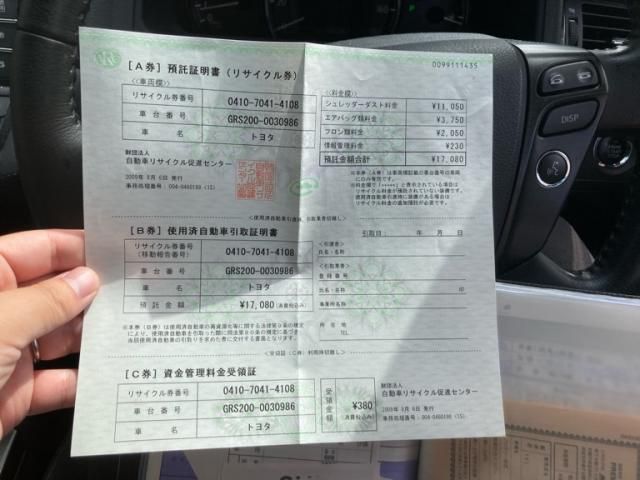 0099111435
[A券] 預託証明書 (リサイクル券)
<<車両欄>>
リサイクル券番号 0410-7041-4108
車台番号 GRS200-0030986
車名 トヨタ
財団法人
自動車リサイクル促進センター
<<料金欄>>
シュレッダーダスト料金 ¥11,050
エアバッグ類料金 ¥3,750
フロン類料金 ¥2,050
情報管理料金 ¥230
預託金額合計 ¥17,080
[B券] 使用済自動車引取証明書
引取日: 年 月 日
リサイクル券番号
(移動報告番号) 0410-7041-4108
車台番号 GRS200-0030986
車名 トヨタ
預託金額 ¥17,080 (消費税込み)
氏名・名称
登録番号
氏名・名称 印
事業所名
所在地
TEL
[C券] 資金管理料金受領証
リサイクル券番号 0410-7041-4108
車台番号 GRS200-0030986
車名 トヨタ
受領金額 ¥380
(消費税込み)
財団法人
自動車リサイクル促進センター
DISP